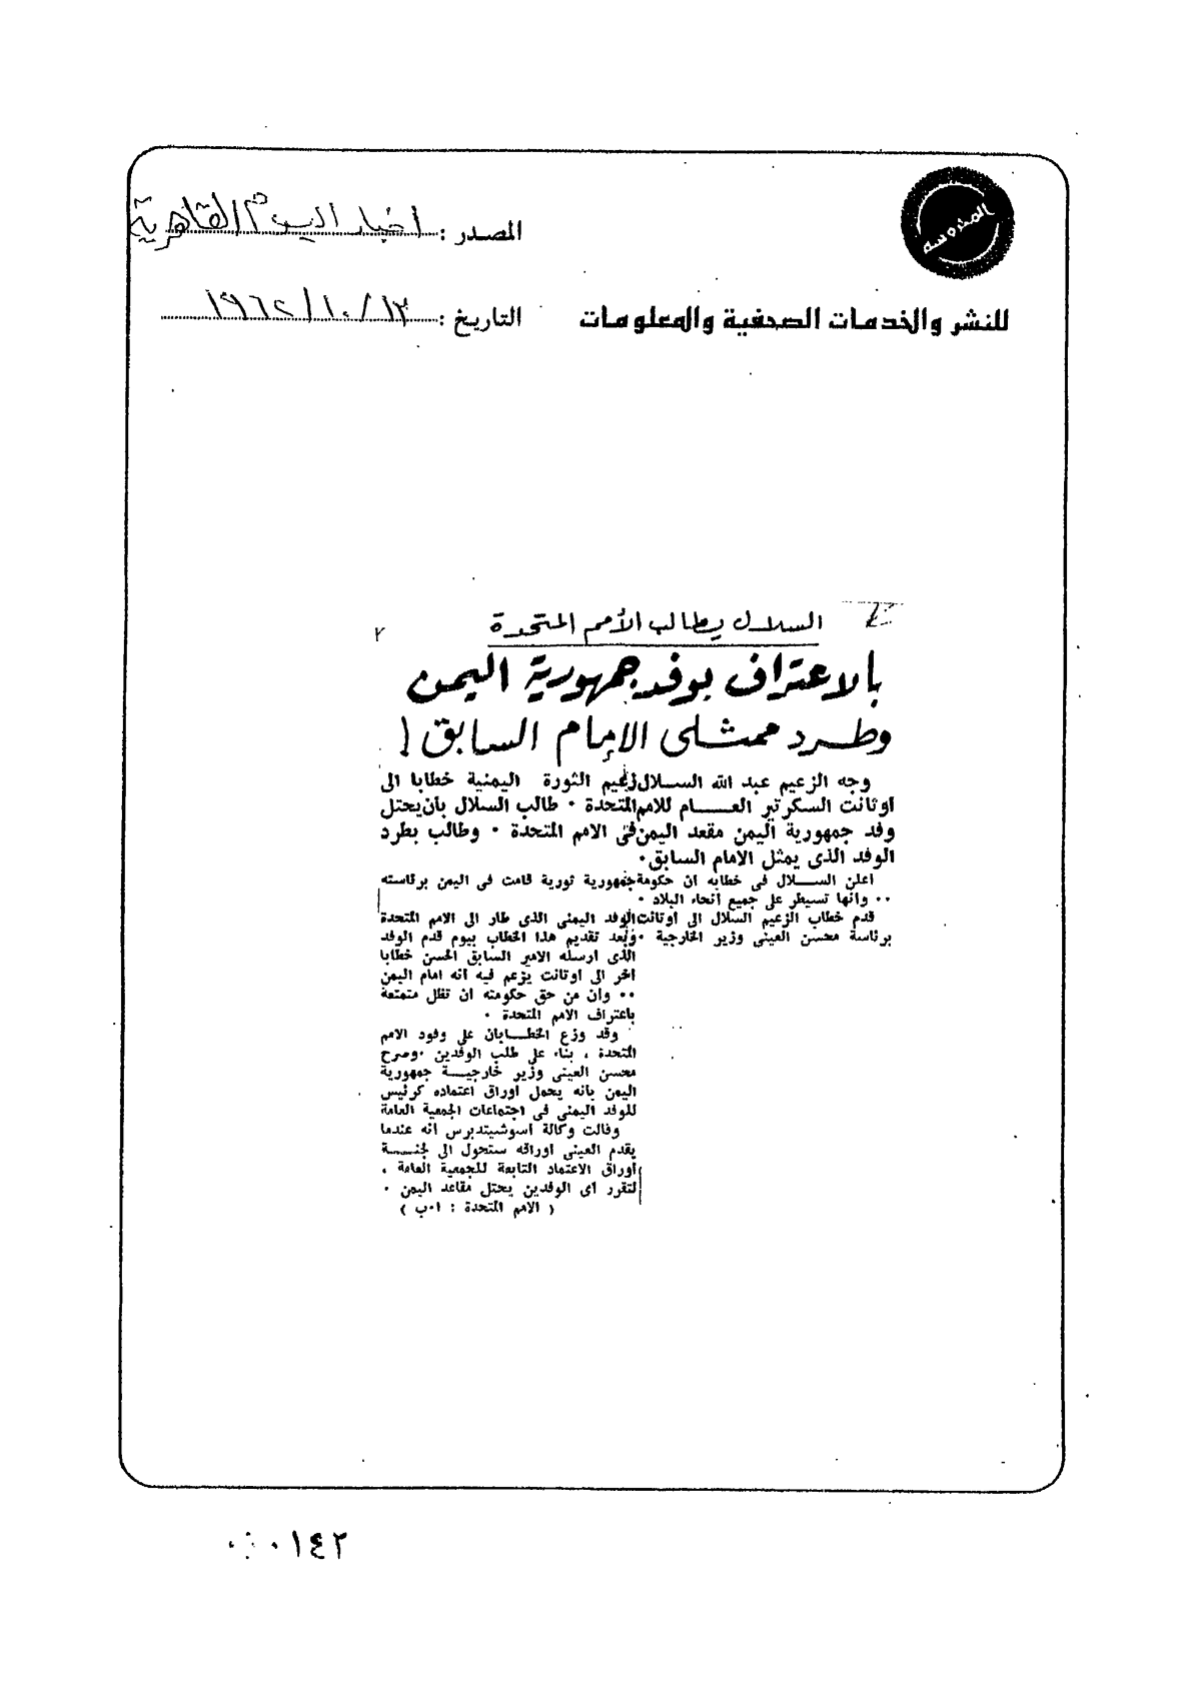 المحروسة
المصدر : اخبار اليوم القاهرية
للنشر والخدمات الصحفية والمعلومات
التاريخ : ١٣/١٠/١٩٦٢
السلال يطالب الأمم المتحدة
٢
بالاعتراف بوفد جمهورية اليمن
وطرد ممثلى الإمام السابق !
وجه الزعيم عبد الله السلال زعيم الثورة اليمنية خطابا الى
اوثانت السكرتير العام للامم المتحدة . طالب السلال بان يحتل
وفد جمهورية اليمن مقعد اليمن فى الامم المتحدة . وطالب بطرد
الوفد الذى يمثل الامام السابق .
اعلن السلال فى خطابه ان حكومة جمهورية ثورية قامت فى اليمن برئاسته
.. وانها تسيطر على جميع انحاء البلاد .
قدم خطاب الزعيم السلال الى اوثانت الوفد اليمنى الذى طار الى الامم المتحدة
برئاسة محسن العينى وزير الخارجية . وبعد تقديم هذا الخطاب بيوم قدم الوفد
الذى ارسله الامير السابق الحسن خطابا
اخر الى اوثانت يزعم فيه انه امام اليمن
.. وان من حق حكومته ان تظل متمتعة
باعتراف الامم المتحدة .
وقد وزع الخطابان على وفود الامم
المتحدة ، بناء على طلب الوفدين . وصرح
محسن العينى وزير خارجية جمهورية
اليمن بانه يحمل اوراق اعتماده كرئيس
للوفد اليمنى فى اجتماعات الجمعية العامة
وقالت وكالة اسوشيتدبرس انه عندما
يقدم العينى اوراقه ستحول الى لجنة
اوراق الاعتماد التابعة للجمعية العامة ،
لتقرر اى الوفدين يحتل مقاعد اليمن .
( الامم المتحدة : ا.ب )
٠١٤٢